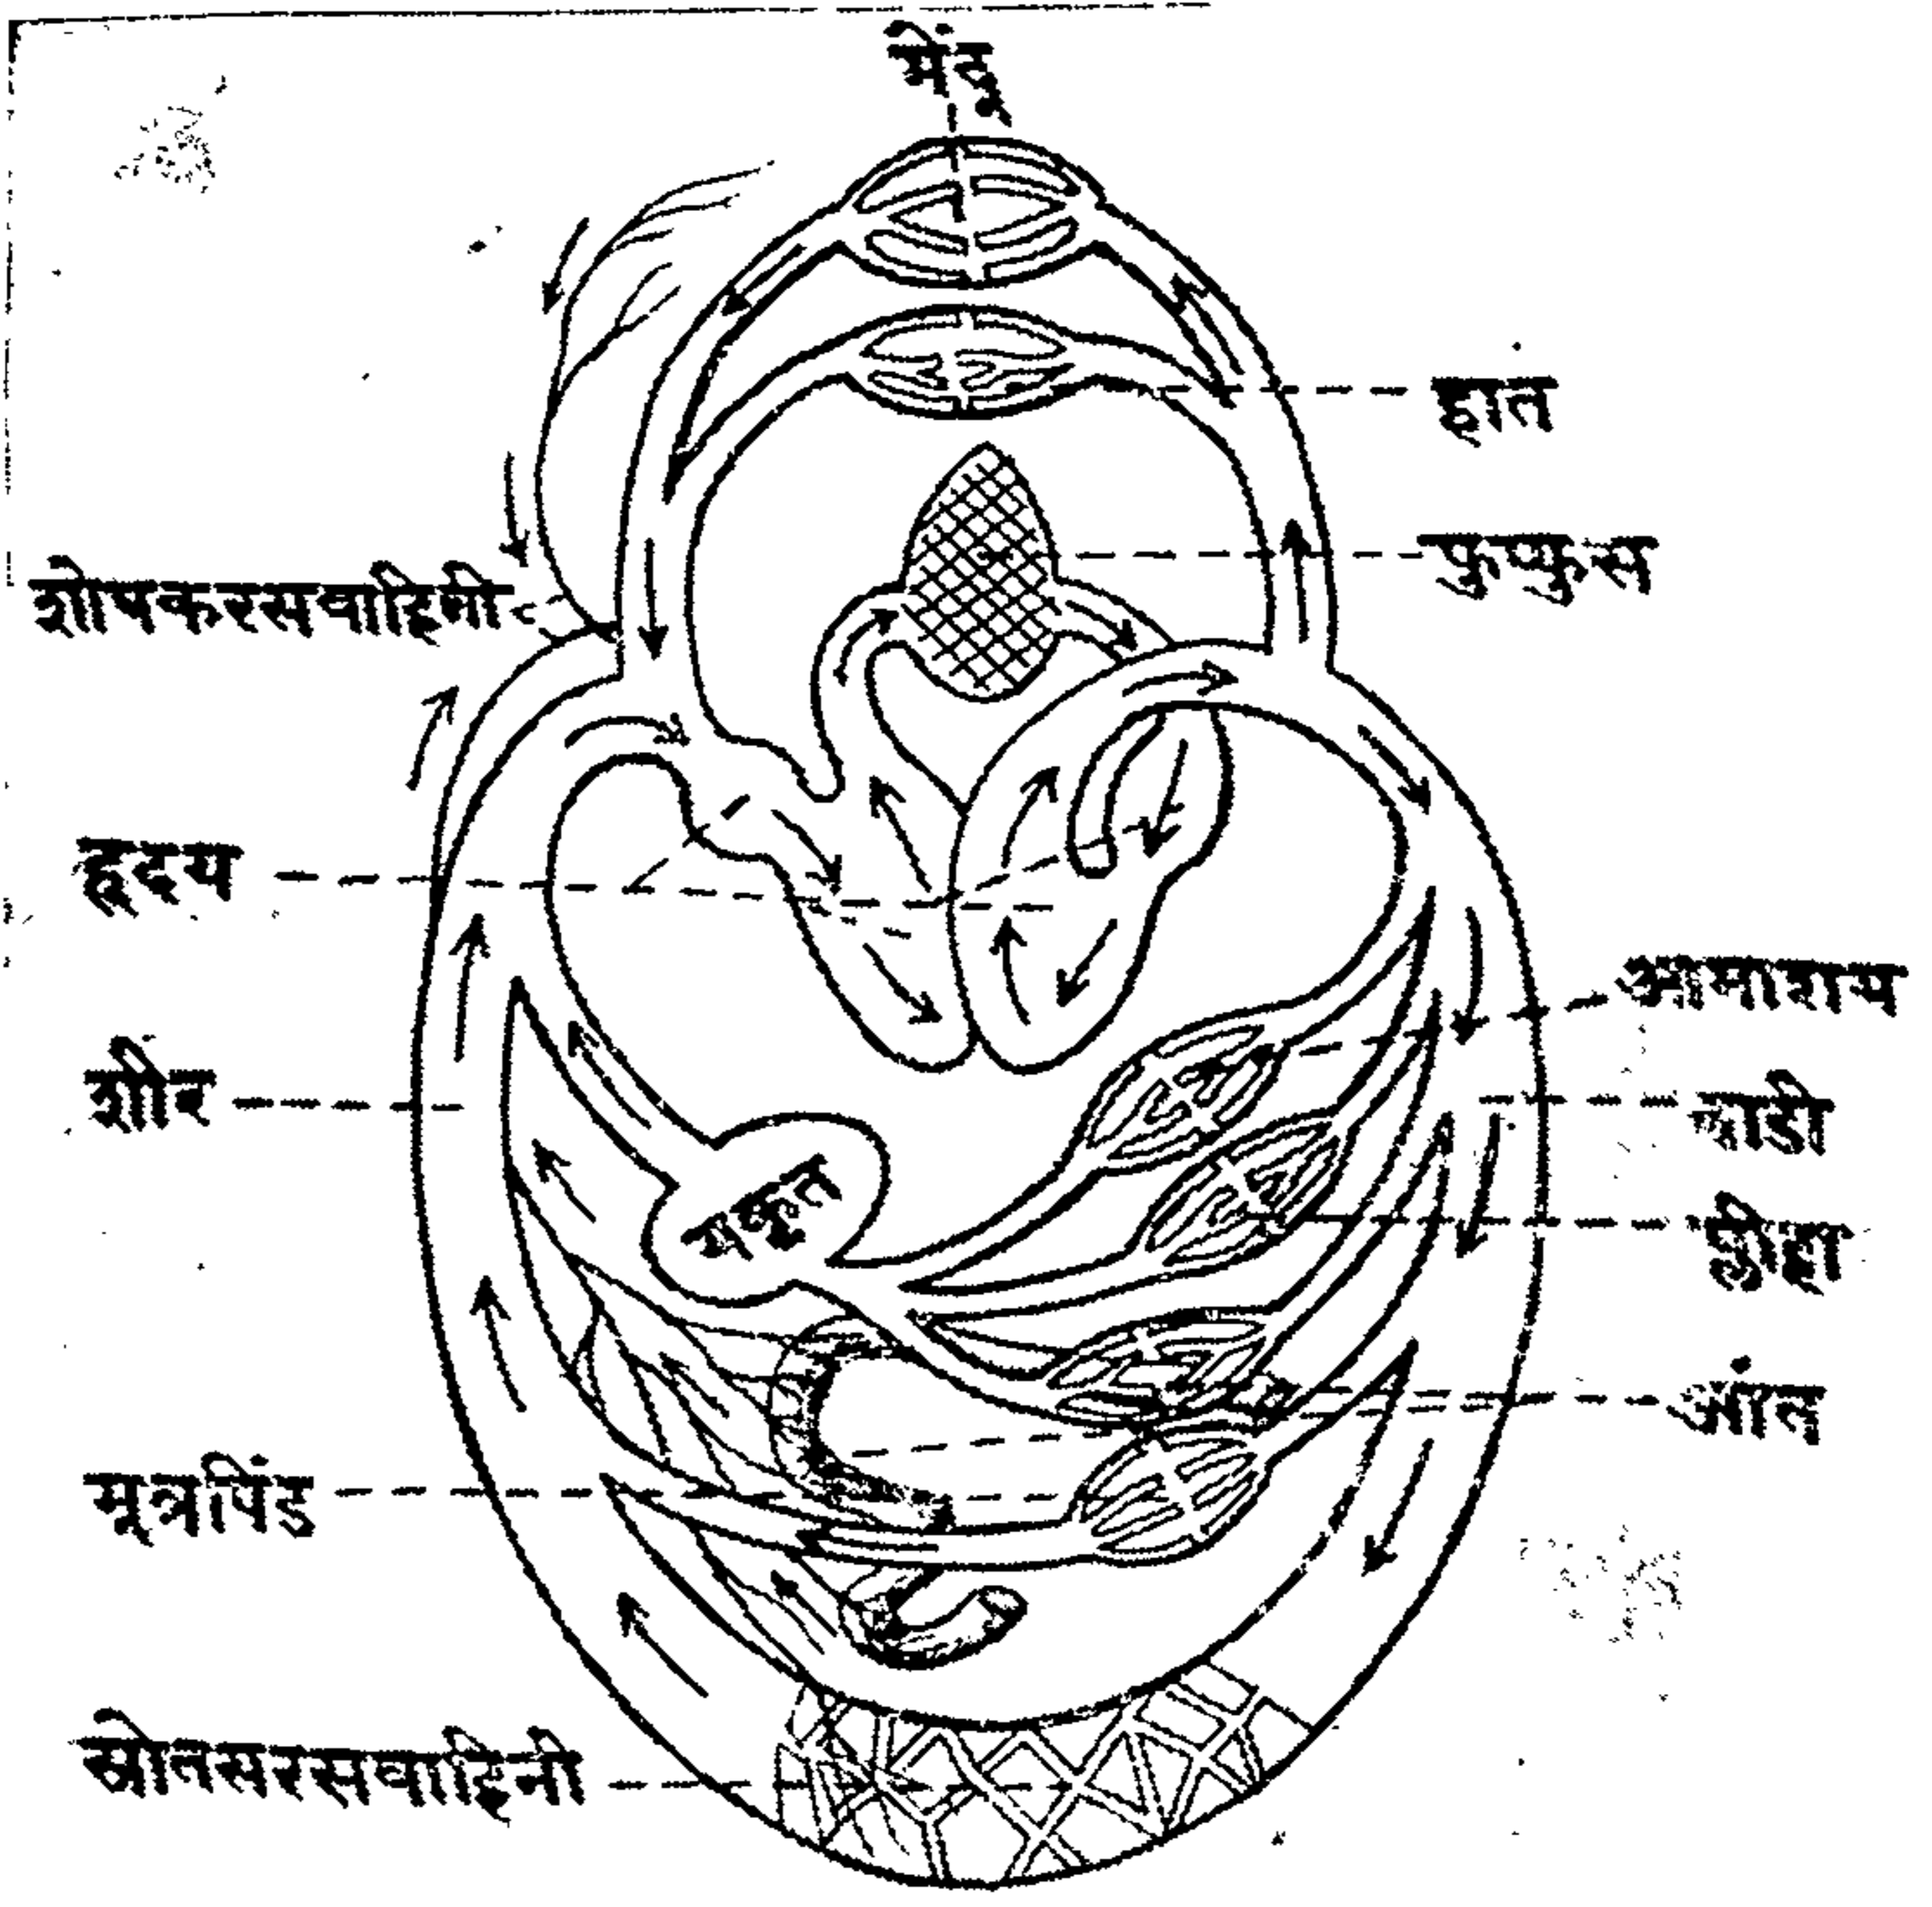 मेंदू
हात
फुप्फुस
शोषकरसवाहिनी
हृदय
आमाशय
शीर
नाडी
प्लीहा
यकृत
आंत
मूत्रपिंड
स्रोतसरसवाहिनी